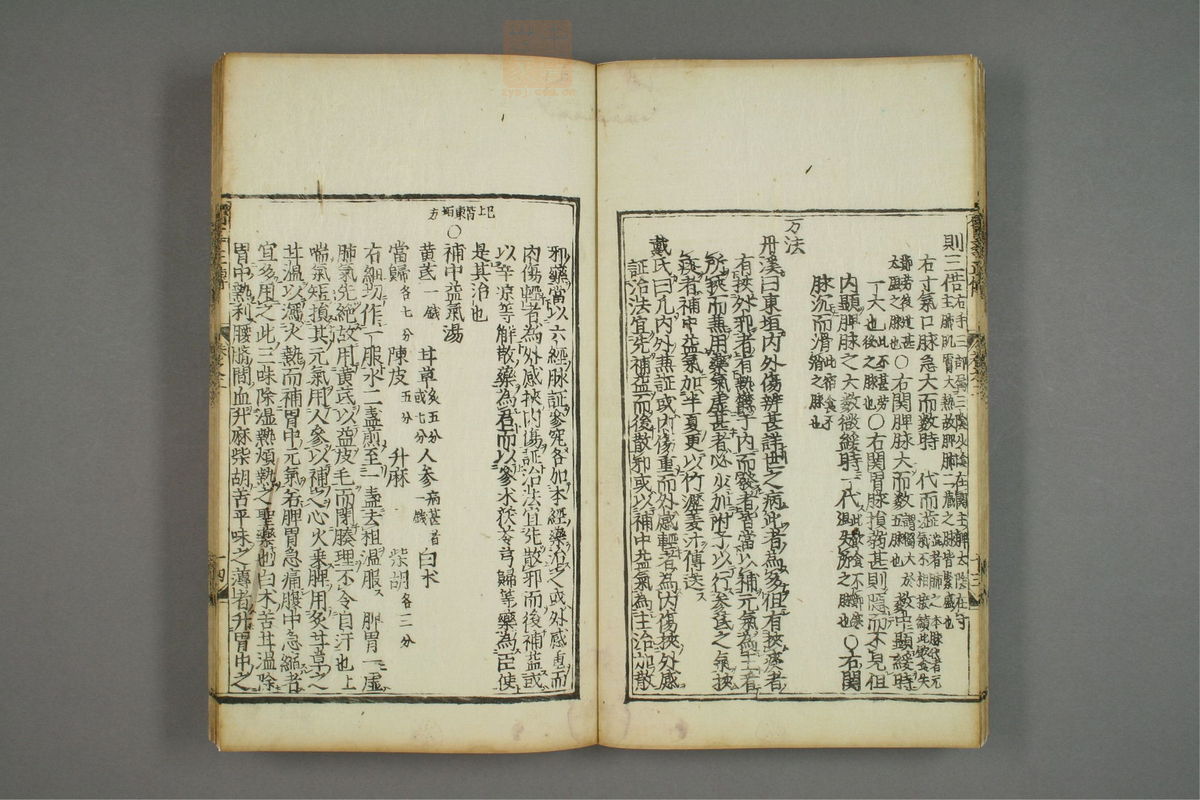 則三倍右手三部
右寸氣口脉急大而數時一代而澁
○右關脾脉大而數
内顯脾脉之大數微緩時一代
○右關胃脉損弱甚則隱而不見但
○右關
脉沉而滑此宿食不消之脉也
方法
丹溪曰東垣内外傷辨甚詳世之病此者為多但有挾痰者
有挾外邪者有熱欝于内而發者皆當以補元氣為主看
所挾而兼用藥氣虚甚者必少加附子以行參芪之氣挾
痰者補中益氣加半夏更以竹瀝姜汁傳送
戴氏曰凡内外兼証或内傷重而外感輕者為内傷挾外感
証治法宜先補益而後散邪或以補中益氣為主治加散
邪藥當以六經脉証參究各加本經藥治之或外感重而
内傷輕者為外感挾内傷証治法宜先散邪而後補益或
以辛凉等解散藥為君而以參朮茯苓芎歸等藥為臣使
是其治也
已上皆東垣方
○補中益氣湯
黄芪一錢 甘草炙五分或七分 人參病甚者一錢 白朮
當歸各七分 陳皮五分 升麻 柴胡各二分
右細切作一服水二盞煎至一盞去粗温服 脾胃一虚
肺氣先絶故用黄芪以益皮毛而閉腠理不令自汗也上
喘氣短損其元氣用人參以補之心火乗脾用炙甘草之
甘温以瀉火熱而補胃中元氣若脾胃急痛腹中急縮者
宜多用之此三味除湿熱煩熱之聖藥也白朮苦甘温除
胃中熱利腰臍間血升麻柴胡苦平味之薄者升胃中之
十三
十四